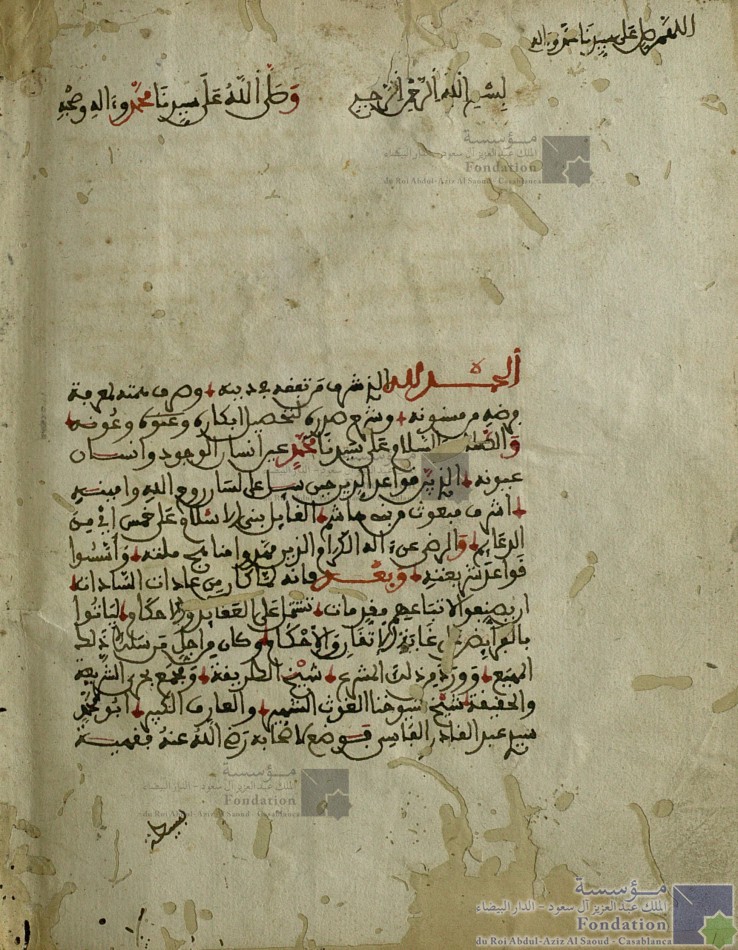 اللهم صل على سيدنا محمد وءاله
بسم الله الرحمن الرحيم وصلى الله على سيدنا محمد وءاله وصحبه
مؤسسة
الملك عبد العزيز آل سعود - الدار البيضاء
Fondation
du Roi Abdul-Aziz Al Saoud - Casablanca
الحمد لله الذي شرف من تفقه في دينه وصرف همته لمعرفة
فرضه من مسنونه وشرح صدره لتحصيل ابكاره وعونه
والصلاة والسلام على سيدنا محمد عين انسان الوجود وانسان
عيونه الذي قواعد الدين حين سيل على لسان روح الله وامينه
اشرف مبعوث من بني هاشم القايل بني الاسلام على خمس اي من
الدعايم والرضى عن ءاله الكرام الذين مهدوا مناهج ملته وأسسوا
قواعد شريعته وبعد فانه لما كان من عادات السادات
ان يصنفوا لاتباعهم مقدمات تشتمل على العقايد والاحكام لياتوا
بالفرايض على غاية الاتقان والاحكام وكان من اجل من سلك ذلك
المهيع وورد من ذلك المشرع شيخ الطريقة ومجمع بحري الشريعة
والحقيقة شيخ شيوخنا الغوث الشهير والعارف الكبير ابو محمد
سيدي عبد القادر الفاسي فوضع لاصحابه رضي الله عنه فقهية
مؤسسة
الملك عبد العزيز آل سعود - الدار البيضاء
Fondation
du Roi Abdul-Aziz Al Saoud - Casablanca
بسيطة
مؤسسة
الملك عبد العزيز آل سعود - الدار البيضاء
Fondation
du Roi Abdul-Aziz Al Saoud - Casablanca